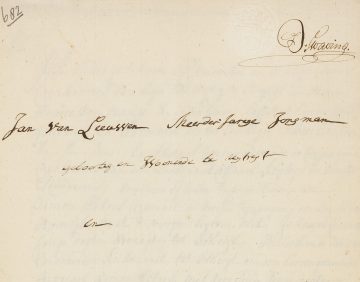 682
D: Swaving.
Jan van Leeuwen Meerder Jarge Jongman
geboortig en Woonende te
en